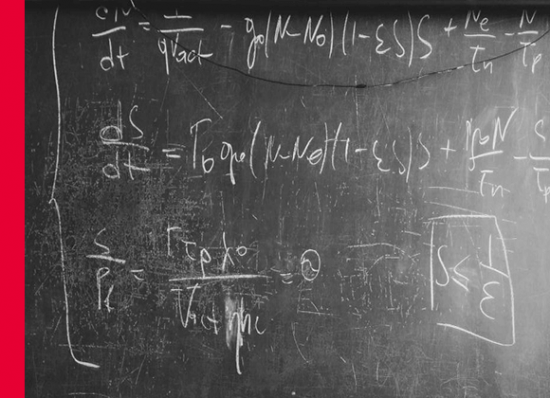 dN/dt = I/qVact - g₀(N-N₀)(1-εS)S + Ne/τn - N/τp
dS/dt = Γ₀g₀(N-N₀)(1-εS)S + βN/τn - S/τp
S/Pf = Γτpλ₀/Vactηhc = ϑ
S ≤ 1/ε